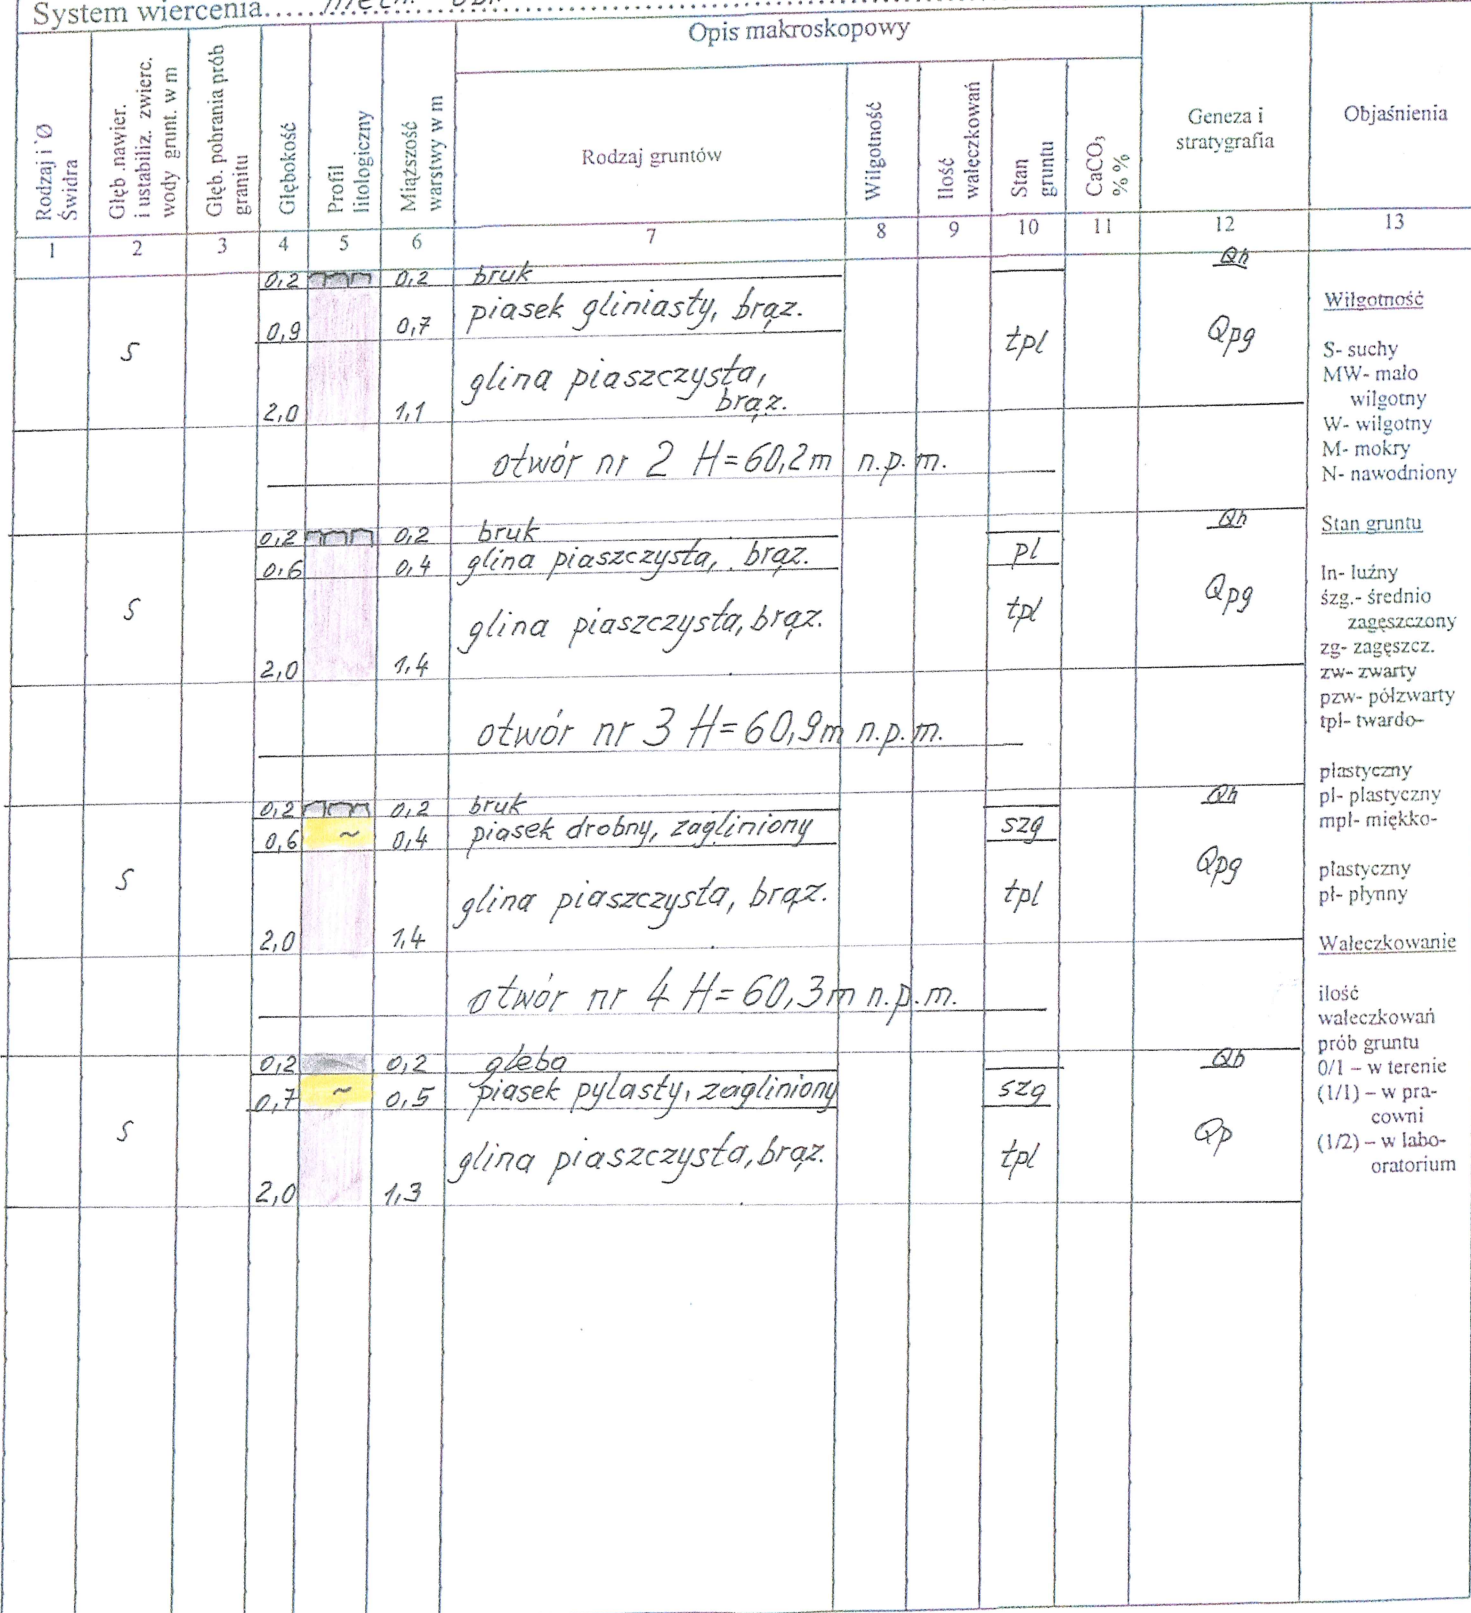 System wiercenia..... mech.
Opis makroskopowy
Rodzaj i Ø
Świdra
Głęb .nawier.
i ustabiliz. zwierc.
wody grunt. w m
Głęb. pobrania prób
granitu
Głębokość
Profil
litologiczny
Miąższość
warstwy w m
Rodzaj gruntów
Wilgotność
Ilość
wałeczkowań
Stan
gruntu
CaCO3
% %
Geneza i
stratygrafia
Objaśnienia
1 2 3 4 5 6 7 8 9 10 11 12 13
0,2 0,2 bruk Qh
0,9 0,7 piasek gliniasty, brąz.
S tpl Qpg
glina piaszczysta,
2,0 1,1 brąz.
otwór nr 2 H=60,2m n.p.m.
0,2 0,2 bruk Qh
0,6 0,4 glina piaszczysta, brąz. pl
S glina piaszczysta, brąz. tpl Qpg
2,0 1,4
otwór nr 3 H=60,9m n.p.m.
0,2 0,2 bruk Qh
0,6 ~ 0,4 piasek drobny, zagliniony szg
S glina piaszczysta, brąz. tpl Qpg
2,0 1,4
otwór nr 4 H=60,3m n.p.m.
0,2 0,2 gleba Qh
0,7 ~ 0,5 piasek pylasty, zagliniony szg
S glina piaszczysta, brąz. tpl Qp
2,0 1,3
Wilgotność
S- suchy
MW- mało
wilgotny
W- wilgotny
M- mokry
N- nawodniony
Stan gruntu
ln- luźny
śzg.- średnio
zagęszczony
zg- zagęszcz.
zw- zwarty
pzw- półzwarty
tpl- twardo-
plastyczny
pl- plastyczny
mpl- miękko-
plastyczny
pł- płynny
Wałeczkowanie
ilość
wałeczkowań
prób gruntu
0/1 – w terenie
(1/1) – w pra-
cowni
(1/2) – w labo-
oratorium